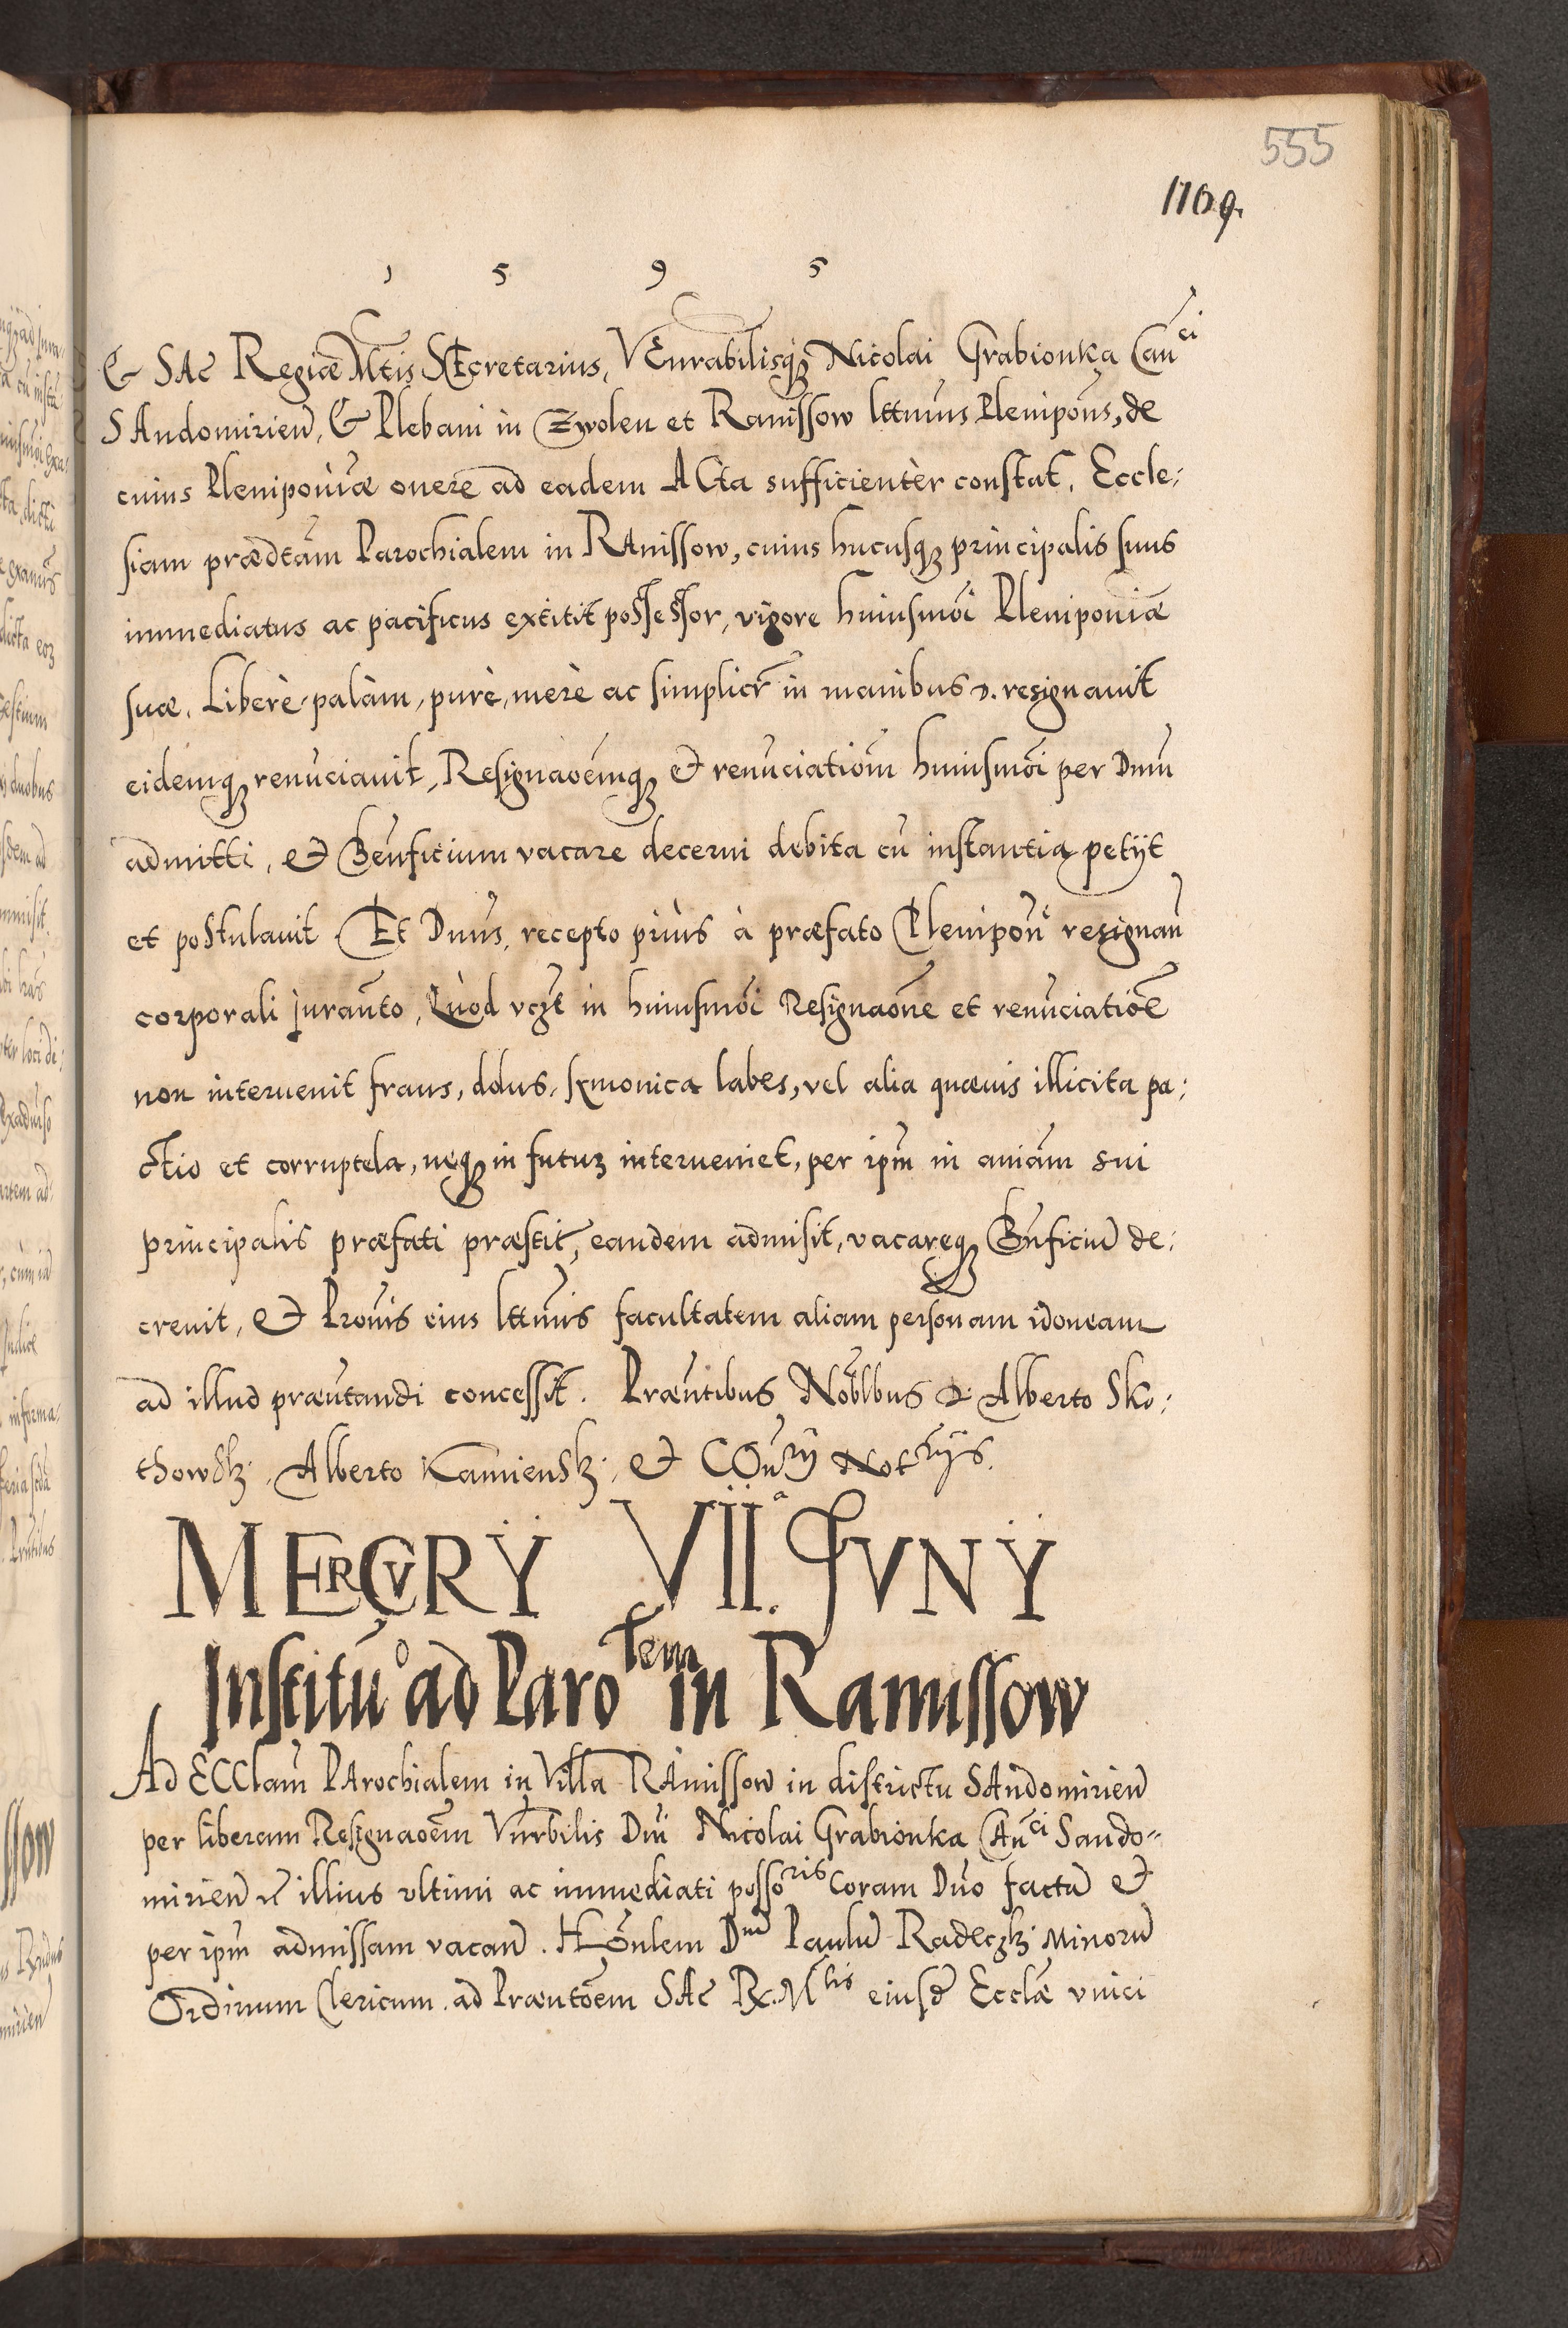 555
1109.
1 5 9 5
& SAc Regiæ Mtis SEcretarius, VEnrabilisq3 Nicolai Grabionka Canci
SAndomirien, & Plebani in Zwolen et Ranissow lttimus Plenipons, de
cuius Pleniponiæ onere ad eadem ACta sufficientèr constat, Eccle:
siam prædtam Parochialem in RAnissow, cuius hucusq3 principalis suus
immediatus ac pacificus extitit possessor, vigore huiusmoi Pleniponiæ
suæ. Liberè palàm, purè, merè ac simplicr in manibus D. resignauit
eidemq3 renuciauit, Resignaoemq3 et renuciatiom huiusmoi per Dnm
admitti, et Benficium vacare decerni debita cu instantia petijt
et postulauit. Et Dnus, recepto priùs à præfato Plenipone resignan
corporali juranto, Quòd vczt in huiusmoi Resignaone et renuciatioe
non interuenit fraus, dolus, symonica labes, vel alia quæuis illicita pa:
ctio et corruptela, neq3 in futuz interueniet, per ipm in aniam sui
principalis præfati præstit, eandem admisit, vacareq3 Bnficiu de:
creuit, et Prouis eius lttimis facultatem aliam personam idoneam
ad illud præntandi concessit. Præntibus Noblbus D. Alberto Sko:
thowsk: Alberto Kamiensk: et COnrij Notrijs.
MERCVRŸ VII.a JVNŸ
Instituo ad Parotem in Ranissow
Ad ECClam PArochialem in Villa RAnissow in districtu SAndomirien
per liberam Resignaoem Vnrbilis Dni Nicolai Grabionka CAnci Sando-
mirien vt illius vltimi ac immediati possoris Coram Dno facta et
per ipm admissam vacan. HOnlem Dnu Paulu Radeczk: Minoru
Ordinum Clericum ad Præntoem SAc Rx. Mtis eiusd Ecclæ vnici